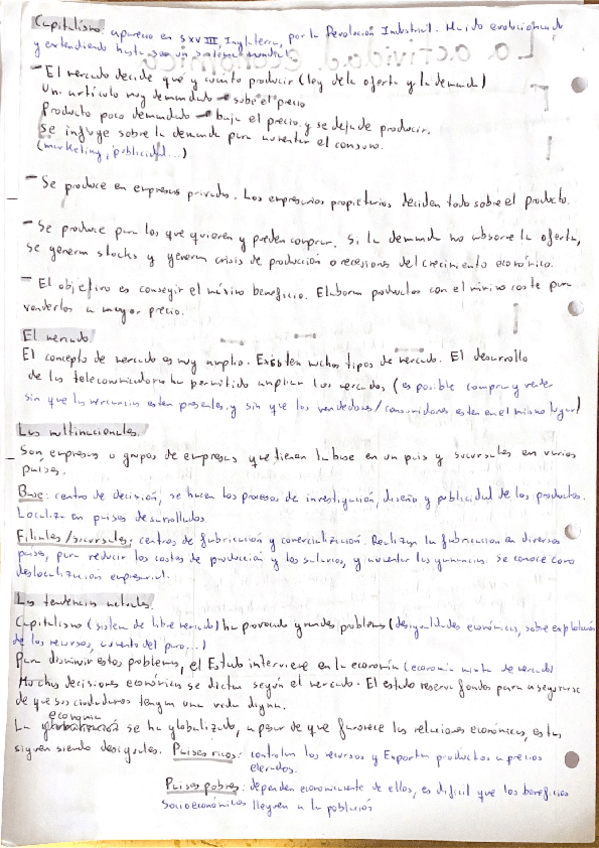 Capitalismo: aparecio en s XVIII, Inglaterra, por la Revolución Industrial. Ha ido evolucionando
y extendiendo hasta ser un sistema mundial
- El mercado decide qué y cuánto producir (ley de la oferta y la demanda)
Un artículo muy demandado → sube el precio
Producto poco demandado → baja el precio y se deja de producir.
Se influye sobre la demanda para aumentar el consumo.
(marketing, publicidad...)
- Se produce en empresas privadas. Los empresarios propietarios deciden todo sobre el producto.
- Se produce para los que quieren y pueden comprar. Si la demanda no absorve la oferta,
se generan stocks y generan crisis de producción o recesiones del crecimiento económico.
- El objetivo es conseguir el máximo beneficio. Elaboran productos con el mínimo coste para
venderlos a mayor precio.
El mercado
El concepto de mercado es muy amplio. Existen muchos tipos de mercado. El desarrollo
de las ha permitido ampliar los mercados (es posible comprar y vender
sin que las mercancias esten presentes y sin que los vendedores/consumidores esten en el mismo lugar)
Las multinacionales
Son empresas o grupos de empresas que tienen la base en un pais y sucursales en varios
paises.
Base: centro de decisión, se hacen los procesos de investigación, diseño y publicidad de los productos.
Localiza en paises desarrollados
Filiales/sucursales: centros de fabricación y comercialización. Realizan la fabricacion en diversos
paises, para reducir los costes de producción y los salarios, y aumentar las ganancias. Se conoce como
deslocalización empresarial.
Las tendencias actuales.
Capitalismo (sistema de libre mercado) ha provocado grandes problemas (desigualdades económicas, sobre explotación
de los recursos, aumento del paro...)
Para disminuir estos problemas, el Estado interviene en la economía (economia mixta de mercado)
Muchas decisiones económicas se dictan según el mercado. El estado reserva fondos para asegurarse
de que sus ciudadanos tengan una vida digna.
La economia se ha globalizado, a pesar de que favorece las relaciones económicas, estas
siguen siendo desiguales. Paises ricos: controlan los recursos y Exportan productos a precios
elevados.
Paises pobres: dependen economicamente de ellos, es dificil que los beneficios
socioeconómicos lleguen a la población